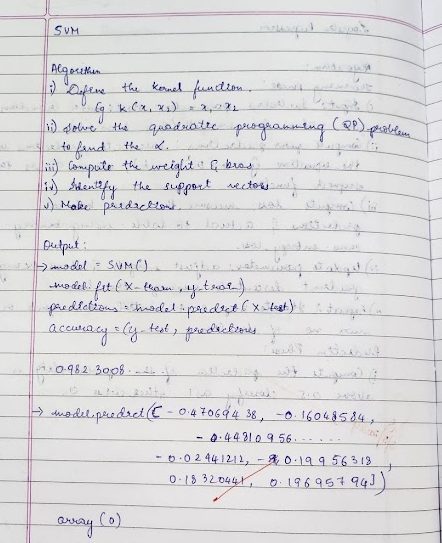 SVM
Algorithm
i) Define the kernel function.
Eg: k(x, x2) = x1 x2
ii) Solve the quadratic programming (QP) problem
to find the α.
iii) Compute the weight & bias
iv) Identify the support vectors
v) Make predictions
Output:
→ model = SVM()
model.fit (X-train, y-train)
predictions = model.predict (X-test)
accuracy = (y-test, predictions
0.982 3008...
→ model.predict([-0.47069438, -0.16048584,
-0.44810956......
-0.02941212, - 0.19956318,
0.18320441, 0.19695794])
array (0)